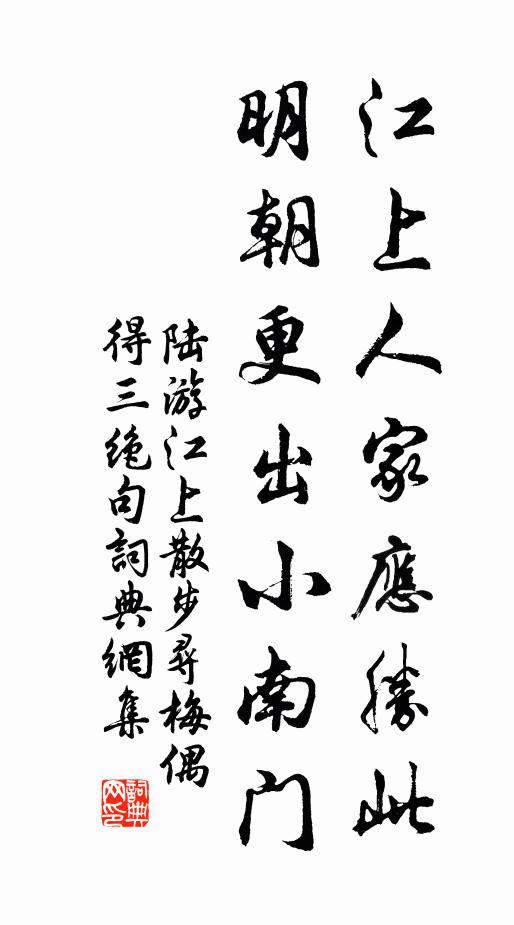 江上人家應勝此
明朝更出小南門
陆游江上散步尋梅偶
得三絶句詞典網集
詞典
网印